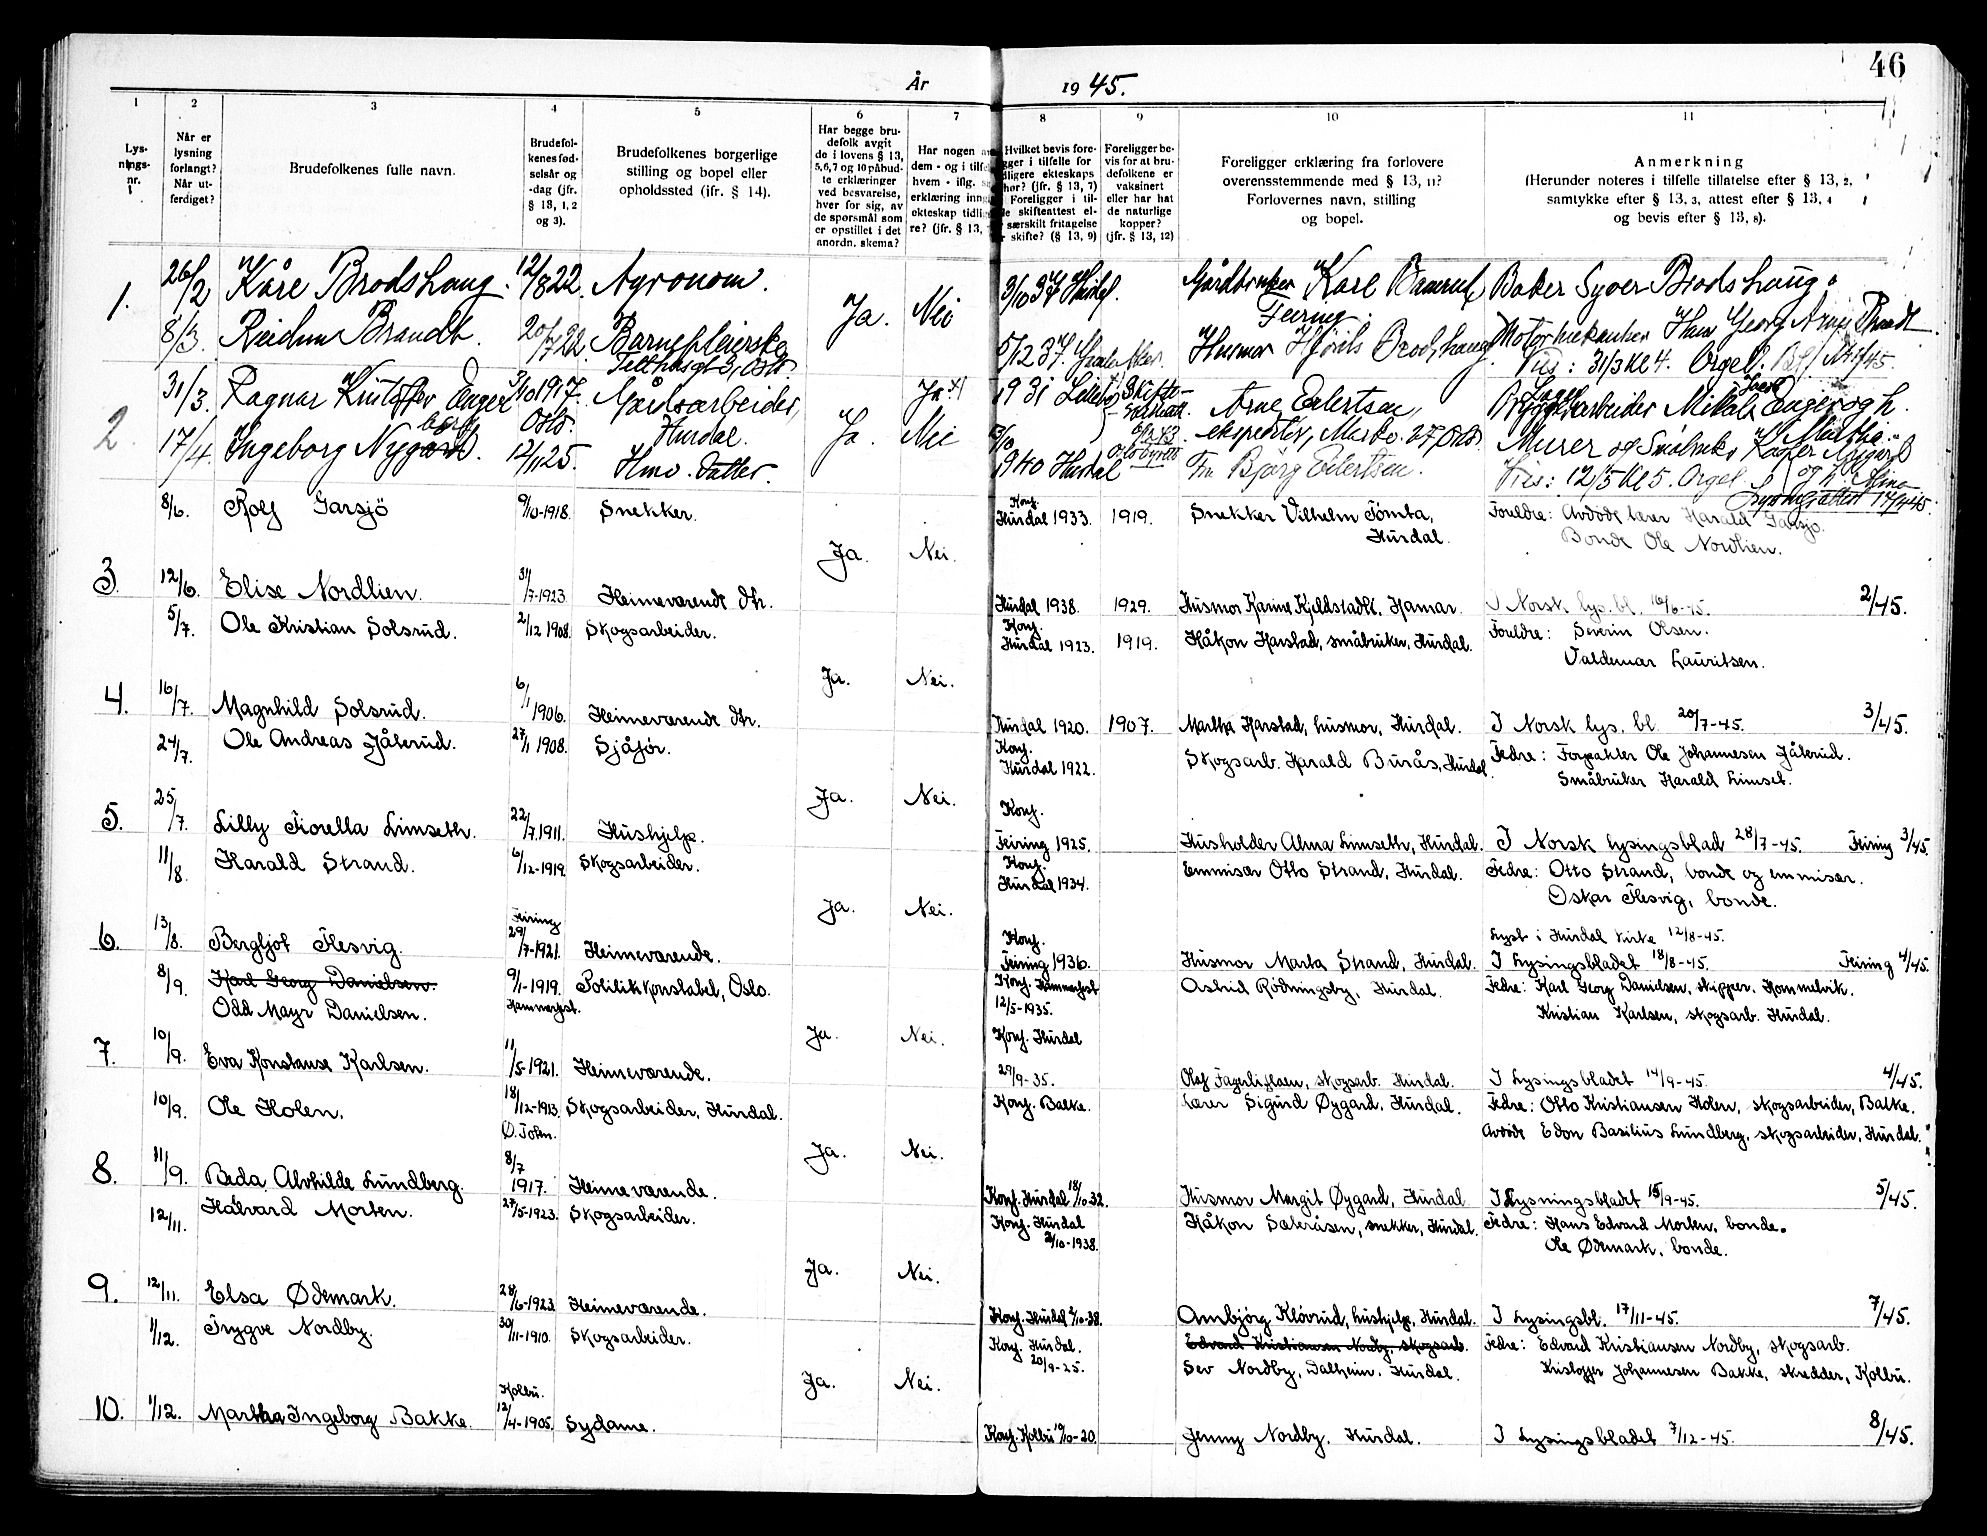 46
År
1945.
1
2
3
4
5
6
7
8
9
10
11
Lys-
nings-
nr.
Når er
lysning
forlangt?
Når ut-
ferdiget?
Brudefolkenes fulle navn.
Brudefol-
kenes fød-
selsår og
-dag (jfr.
§ 13, 1, 2
og 3).
Brudefolkenes borgerlige
stilling og bopel eller
opholdssted (jfr. § 14).
Har begge bru-
defolk avgit
de i lovens § 13,
5,6,7 og 10 påbud-
te erklæringer
ved besvarelse,
hver for sig, av
de spørsmål som
er opstillet i det
anordn. skema?
Har nogen
dem - og i
hvem - iflg.
erklæring
ekteskap
re? (jfr. § 13,
Hvilket bevis fore-
i tilfelle for
ekteskaps
(jfr. § 13, 7)
Foreligger i til-
skifteattest el-
særskilt fritagelse
skifte? (§ 13, 9)
Foreligger be-
vis for at bru-
defolkene er
vaksinert
eller har hat
de naturlige
kopper?
(jfr. § 13, 12)
Foreligger erklæring fra forlovere
overensstemmende med § 13, 11?
Forlovernes navn, stilling
og bopel.
Anmerkning
(Herunder noteres i tilfelle tillatelse efter § 13, 2,
samtykke efter § 13, 3, attest efter § 13, 4
og bevis efter § 13, 8).
1. 26/2 Kåre Brodshaug. 12/8 22. Agronom. Ja. Nei Gårdbruker Karl Baker Syver Brodshaug
Feiring.
8/3. Reidun Brandt. 20/7 22 Barnepleierske Husmor Brodshaug Motormekaniker Hans Georg Brandt
Oslo Vies: 31/3 kl 4. Orgel.
2. 31/3. Ragnar Enger 3/10 1917. Gårdsarbeider, Ja 1931 Skifte- Arne Eilertsen, Enger og h.
Oslo. Hurdal. Ja. Nei ekspeditør,
17/4. Ingeborg Nygard. 12/11 25. Hmv. datter. 1940 Hurdal Fru Bjørg Eilertsen. Murer og
Vies: 12/5 kl 5. Orgel og h.
17/4 45.
8/6. Rolf Garsjö 9/10-1918. Snekker. Konf. Hurdal 1933. 1919. Snekker Vilhelm Tömta, Foreldre: Avdöde lærer Harald Garsjö.
Hurdal. Bonde Ole Nordlien.
Ja. Nei.
3. 12/6. Elise Nordlien. 31/7-1923. Heimeværende dtr. Hurdal 1938. 1929. Husmor Karine Kjeldstadli, Hamar. I Norsk lys. bl. 16/6-45. 2/45.
5/7. Ole Kristian Solsrud. 2/12 1908. Skogsarbeider. Konf. Hurdal 1923. 1919. Håkon Harstad, småbruker, Hurdal. Foreldre: Severin Olsen.
Valdemar Lauritsen.
Ja. Nei.
4. 16/7. Magnhild Solsrud. 6/1 1906. Heimeværende dtr. Hurdal 1920. 1907. Martha Harstad, husmor, Hurdal. I Norsk lys. bl 20/7-45. 3/45.
24/7. Ole Andreas Jålerud. 27/1 1908. Sjåför. Konf. Hurdal 1922. Skogsarb. Harald Burås, Hurdal. Fedre: Forpakter Ole Johannesen Jålerud.
Småbruker Harald Limset.
Ja. Nei.
5. 25/7. Lilly Fiorella Limseth. 22/7.1911. Hushjelp. Konf. Feiring 1925. Husholder Alma Limseth, Hurdal. I Norsk lysingsblad 28/7-45. Feiring 3/45.
11/8. Harald Strand. 6/12-1919. Skogsarbeider. Konf. Hurdal 1934. Emmisær Otto Strand, Hurdal. Fedre: Otto Strand, bonde og emmisær.
Oskar Flesvig, bonde.
Ja. Nei.
6. 13/8. Bergljot Flesvig. Feiring 29/7-1921. Heimeværende. Konf. Feiring 1936. Husmor Marta Strand, Hurdal. Lyst i Hurdal kirke 12/8-45.
I Lysingsbladet 18/8-45. Feiring 4/45.
8/9. Karl Georg Danielsen. 9/1-1919. Politikkonstabel, Oslo. Konf. Hammerfest Astrid Rödningsby, Hurdal. Fedre: Karl Georg Danielsen, skipper, Hommelvik.
Odd Mayr Danielsen. Hammerfest. 12/5-1935. Kristian Karlsen, skogsarb. Hurdal.
Ja. Nei.
7. 10/9. Eva Konstanse Karlsen. 11/5-1921. Heimeværende. Konf. Hurdal 29/9-35. Olaf Fagerliflaen, skogsarb. Hurdal. I Lysingsbladet 14/9-45. 4/45.
10/9. Ole Holen. 18/12-1913. Skogsarbeider, Hurdal. Konf. Balke. Lærer Sigurd Øygard, Hurdal. Fedre: Otto Kristiansen Holen, skogsarbeider, Balke.
Ø. Toten. Avdöde Edon Basilius Lundberg, skogsarbeider, Hurdal.
Ja. Nei.
8. 11/9. Beda Alvhilde Lundberg. 8/7 1917. Heimeværende. Konf. Hurdal 18/10-32. Husmor Margit Øygard, Hurdal I Lysningsbladet 15/9-45. 5/45.
12/11. Halvard Morten. 27/5-1923. Skogsarbeider. Konf. Hurdal 2/10-1938. Håkon Sæteråsen, snekker, Hurdal. Fedre: Hans Edvard Morten, bonde.
Ole Ødemark, bonde.
Ja. Nei.
9. 12/11. Elsa Ødemark. 28/6-1923. Heimeværende. Konf. Hurdal 2/10-38. Ambjörg Klövrud, hushjelp, Hurdal. I Lysingsbl. 17/11-45. 7/45.
1/12. Trygve Nordby. 30/11-1910. Skogsarbeider. Konf. Hurdal. 20/9-25. Edvard Kristiansen Nordby, skogsarb. Fedre: Edvard Kristiansen Nordby, skogsarb.
Sev Nordby, Dalheim, Hurdal. Kristoffer Johannesen Bakke, skredder, Kolbu.
Ja. Nei.
10. 1/12. Martha Ingeborg Bakke. Kolbu. 12/4-1905. Sydame. Konf. Kolbu 10/10-20. Jenny Nordby. Hurdal. I Lysingsbladet 7/12-45. 8/45.